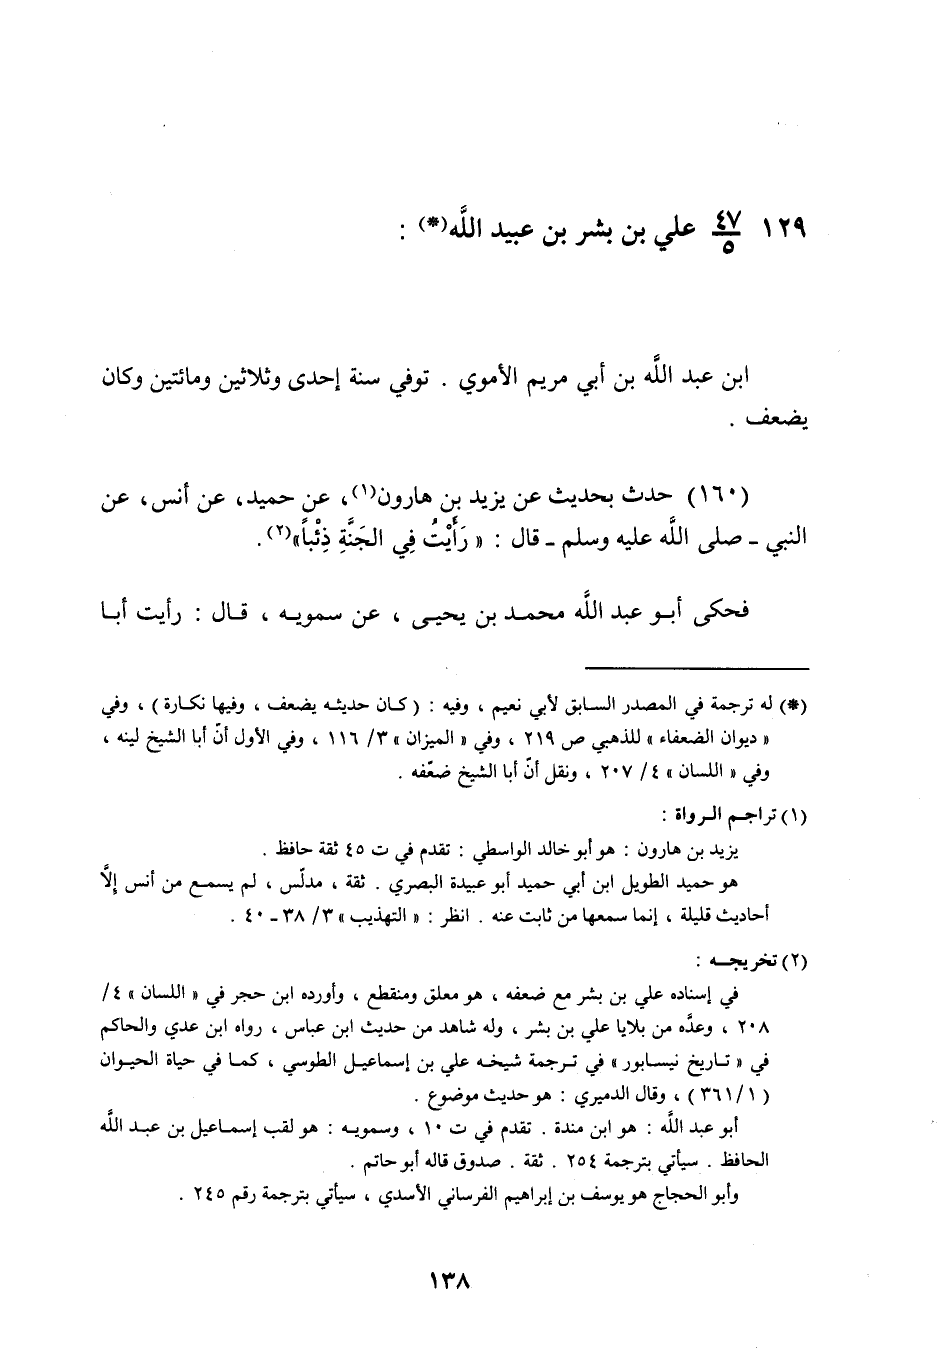 ١٢٩ ٤٧/٥ علي بن بشر بن عبيد اللَّه(*) :
ابن عبد اللَّه بن أبي مريم الأموي . توفي سنة إحدى وثلاثين ومائتين وكان
يضعف .
(١٦٠) حدث بحديث عن يزيد بن هارون(١)، عن حميد، عن أنس، عن
النبي ـ صلى اللَّه عليه وسلم ـ قال : « رَأَيْتُ فِي الجَنَّةِ ذِئْباً»(٢).
فحكى أبو عبد اللَّه محمد بن يحيى ، عن سمويه ، قال : رأيت أبا
(*) له ترجمة في المصدر السابق لأبي نعيم ، وفيه : ( كان حديثه يضعف ، وفيها نكارة ) ، وفي
« ديوان الضعفاء » للذهبي ص ٢١٩ ، وفي « الميزان » ٣/ ١١٦ ، وفي الأول أنّ أبا الشيخ لينه ،
وفي « اللسان » ٤/ ٢٠٧ ، ونقل أنّ أبا الشيخ ضعّفه .
(١) تراجم الرواة :
يزيد بن هارون : هو أبو خالد الواسطي : تقدم في ت ٤٥ ثقة حافظ .
هو حميد الطويل ابن أبي حميد أبو عبيدة البصري . ثقة ، مدلّس ، لم يسمع من أنس إلاَّ
أحاديث قليلة ، إنما سمعها من ثابت عنه . انظر : « التهذيب » ٣/ ٣٨ ـ ٤٠ .
(٢) تخريجه :
في إسناده علي بن بشر مع ضعفه ، هو معلق ومنقطع ، وأورده ابن حجر في « اللسان » ٤/
٢٠٨ ، وعدَّه من بلايا علي بن بشر ، وله شاهد من حديث ابن عباس ، رواه ابن عدي والحاكم
في « تاريخ نيسابور » في ترجمة شيخه علي بن إسماعيل الطوسي ، كما في حياة الحيوان
( ١/ ٣٦١ ) ، وقال الدميري : هو حديث موضوع .
أبو عبد اللَّه : هو ابن مندة . تقدم في ت ١٠ ، وسمويه : هو لقب إسماعيل بن عبد اللَّه
الحافظ . سيأتي بترجمة ٢٥٤ . ثقة . صدوق قاله أبو حاتم .
وأبو الحجاج هو يوسف بن إبراهيم الفرساني الأسدي ، سيأتي بترجمة رقم ٢٤٥ .
١٣٨